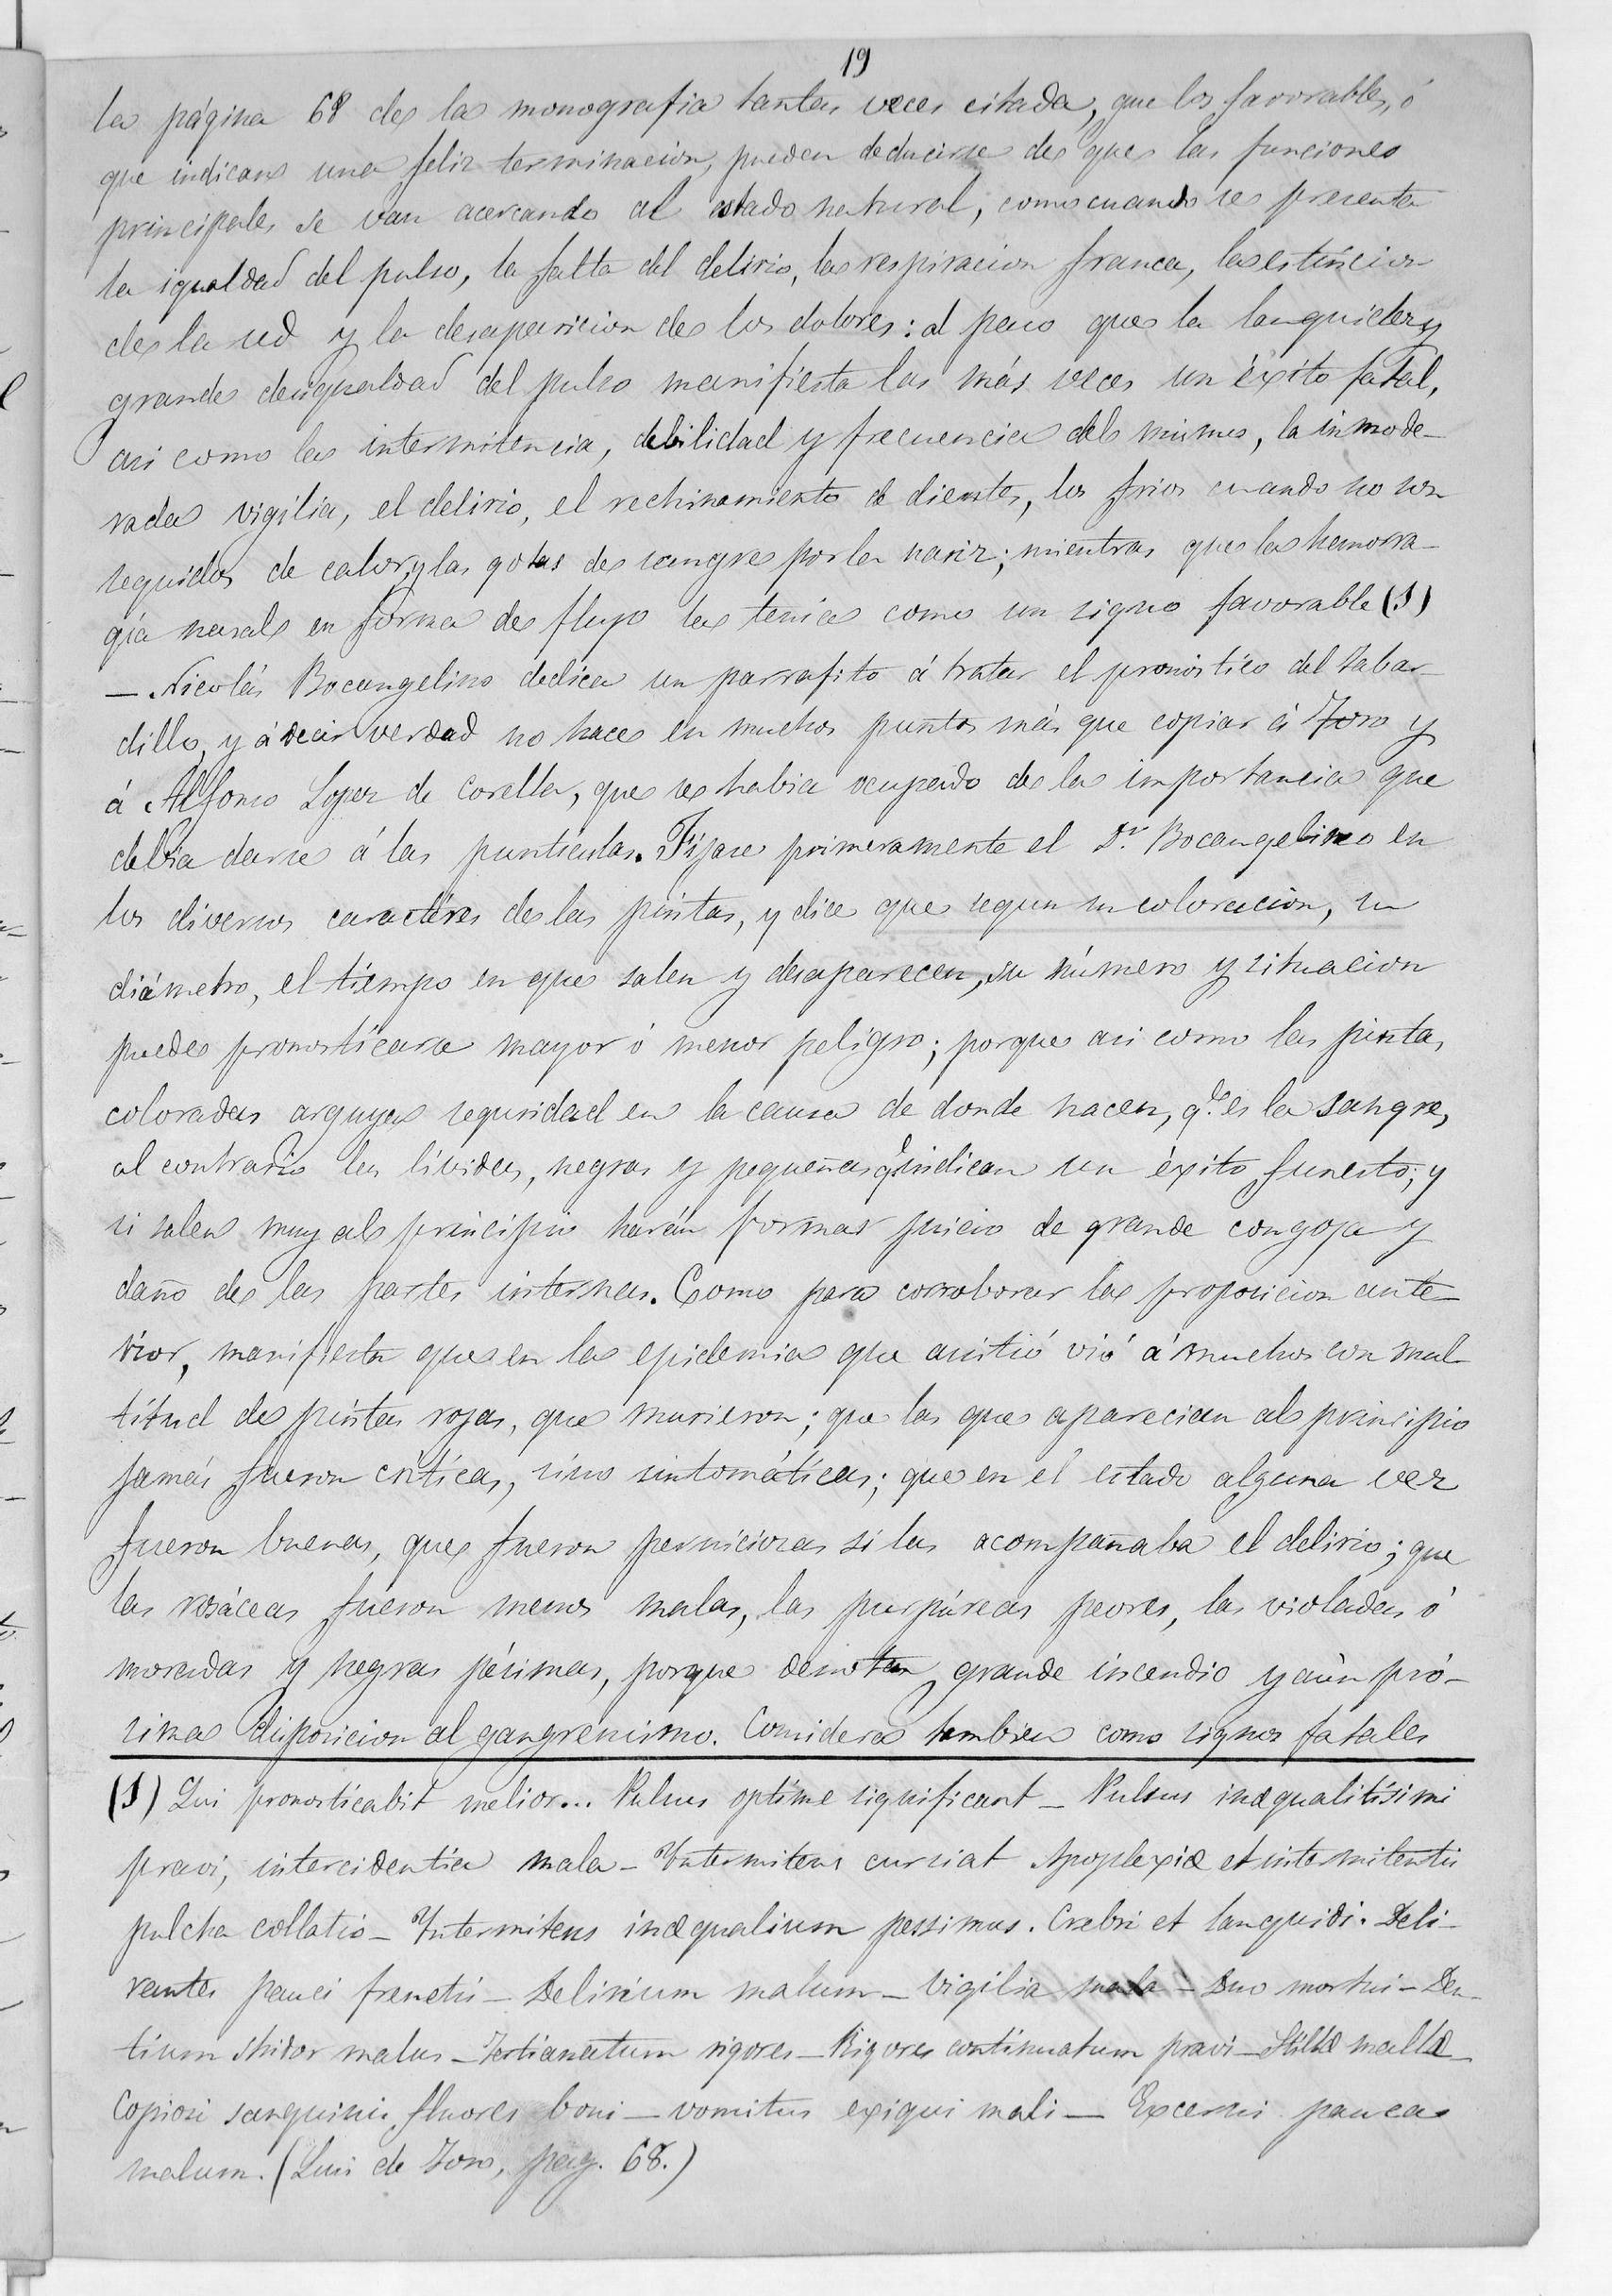 19
la página 68 de la monografia tantas veces citada, que los favorables, ó
que indican una feliz terminacion, pueden deducirse de que las funciones
principales se van acercando al estado natural, como cuando se presenta
la igualdad del pulso, la falta del delirio, la respiracion franca, la estincion
de la sed y la desaparicion de los dolores: al paso que la languidez y
grande desigualdad del pulso manifiesta las más veces un éxito fatal,
asi como la intermitencia, debilidad y frecuencia del mismo, la inmode-
rada vigilia, el delirio, el rechinamiento de dientes, los frios cuando no son
seguidos de calor, y las gotas de sangre por la nariz; mientras que la hemorra-
gia nasal en forma de flujo la tenia como un signo favorable (1)
— Nicolás Bocangelino dedica un parrafito á tratar el pronóstico del tabar-
dillo, y á decir verdad no hace en muchos puntos más que copiar á Toro y
á Alfonso Lopez de Corella, que se habia ocupado de la importancia que
debia darse á las punticulas. Fíjase primeramente el Dr. Bocangelino en
los diversos caractéres de las pintas, y dice que segun su coloracion, su
diámetro, el tiempo en que salen y desaparecen, su número y situacion
puede pronosticarse mayor ó menor peligro; porque asi como las pintas
coloradas arguyen seguridad en la causa de donde nacen, qe. es la sangre,
al contrario las lívidas, negras y pequeñas qe indican un éxito funesto; y
si salen muy al principio harán formar juicio de grande congoja y
daño de las partes internas. Como para corroborar la proposicion ante-
rior, manifiesta que en la epidemia que asistió vió á muchos con mul-
titud de pintas rojas, que murieron; que las que aparecian al principio
jamás fueron críticas, sino sintomáticas; que en el estado alguna vez
fueron buenas, que fueron perniciosas si las acompañaba el delirio; que
las rosáceas fueron menos malas, las purpúreas peores, las violadas ó
moradas y negras pésimas, porque denotan grande incendio y aún pró-
sima disposicion al gangrenismo. Considera tambien como signos fatales
(1) Qui pronosticabit melior... Pulsus optime significant — Pulsus inæqualitisimi
pravi, intercidentia mala — Intermitens cursiat Apoplexiæ et intermitentis
pulcha collatio — Intermitens inæqualium pessimus. Crebri et languidi. Deli-
rantes pauci frenetis — Delirium malum — Vigilia mala — Duo mortui — Den-
tium stridor malus — Tertianatum rigores — Rigores continuatum pravi — Stillæ mallæ —
Copiosi sanguinis fluores boni — vomitus exigui mali — Excessui pauca
malum. (Luis de Toro, pag. 68.)